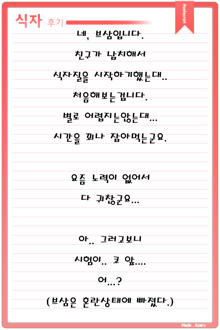 식자 후기
네, 보삼입니다.
친구가 납치해서
식자질을 시작하기했는대..
처음해보는겁니다.
별로 어렵지는않는대...
시간을 꽤나 잡아먹는군요.
요즘 노력이 없어서
다 귀찮군요...
아.. 그러고보니
시험이.. 코 앞....
어...?
(보삼은 혼란상태에 빠졌다.)